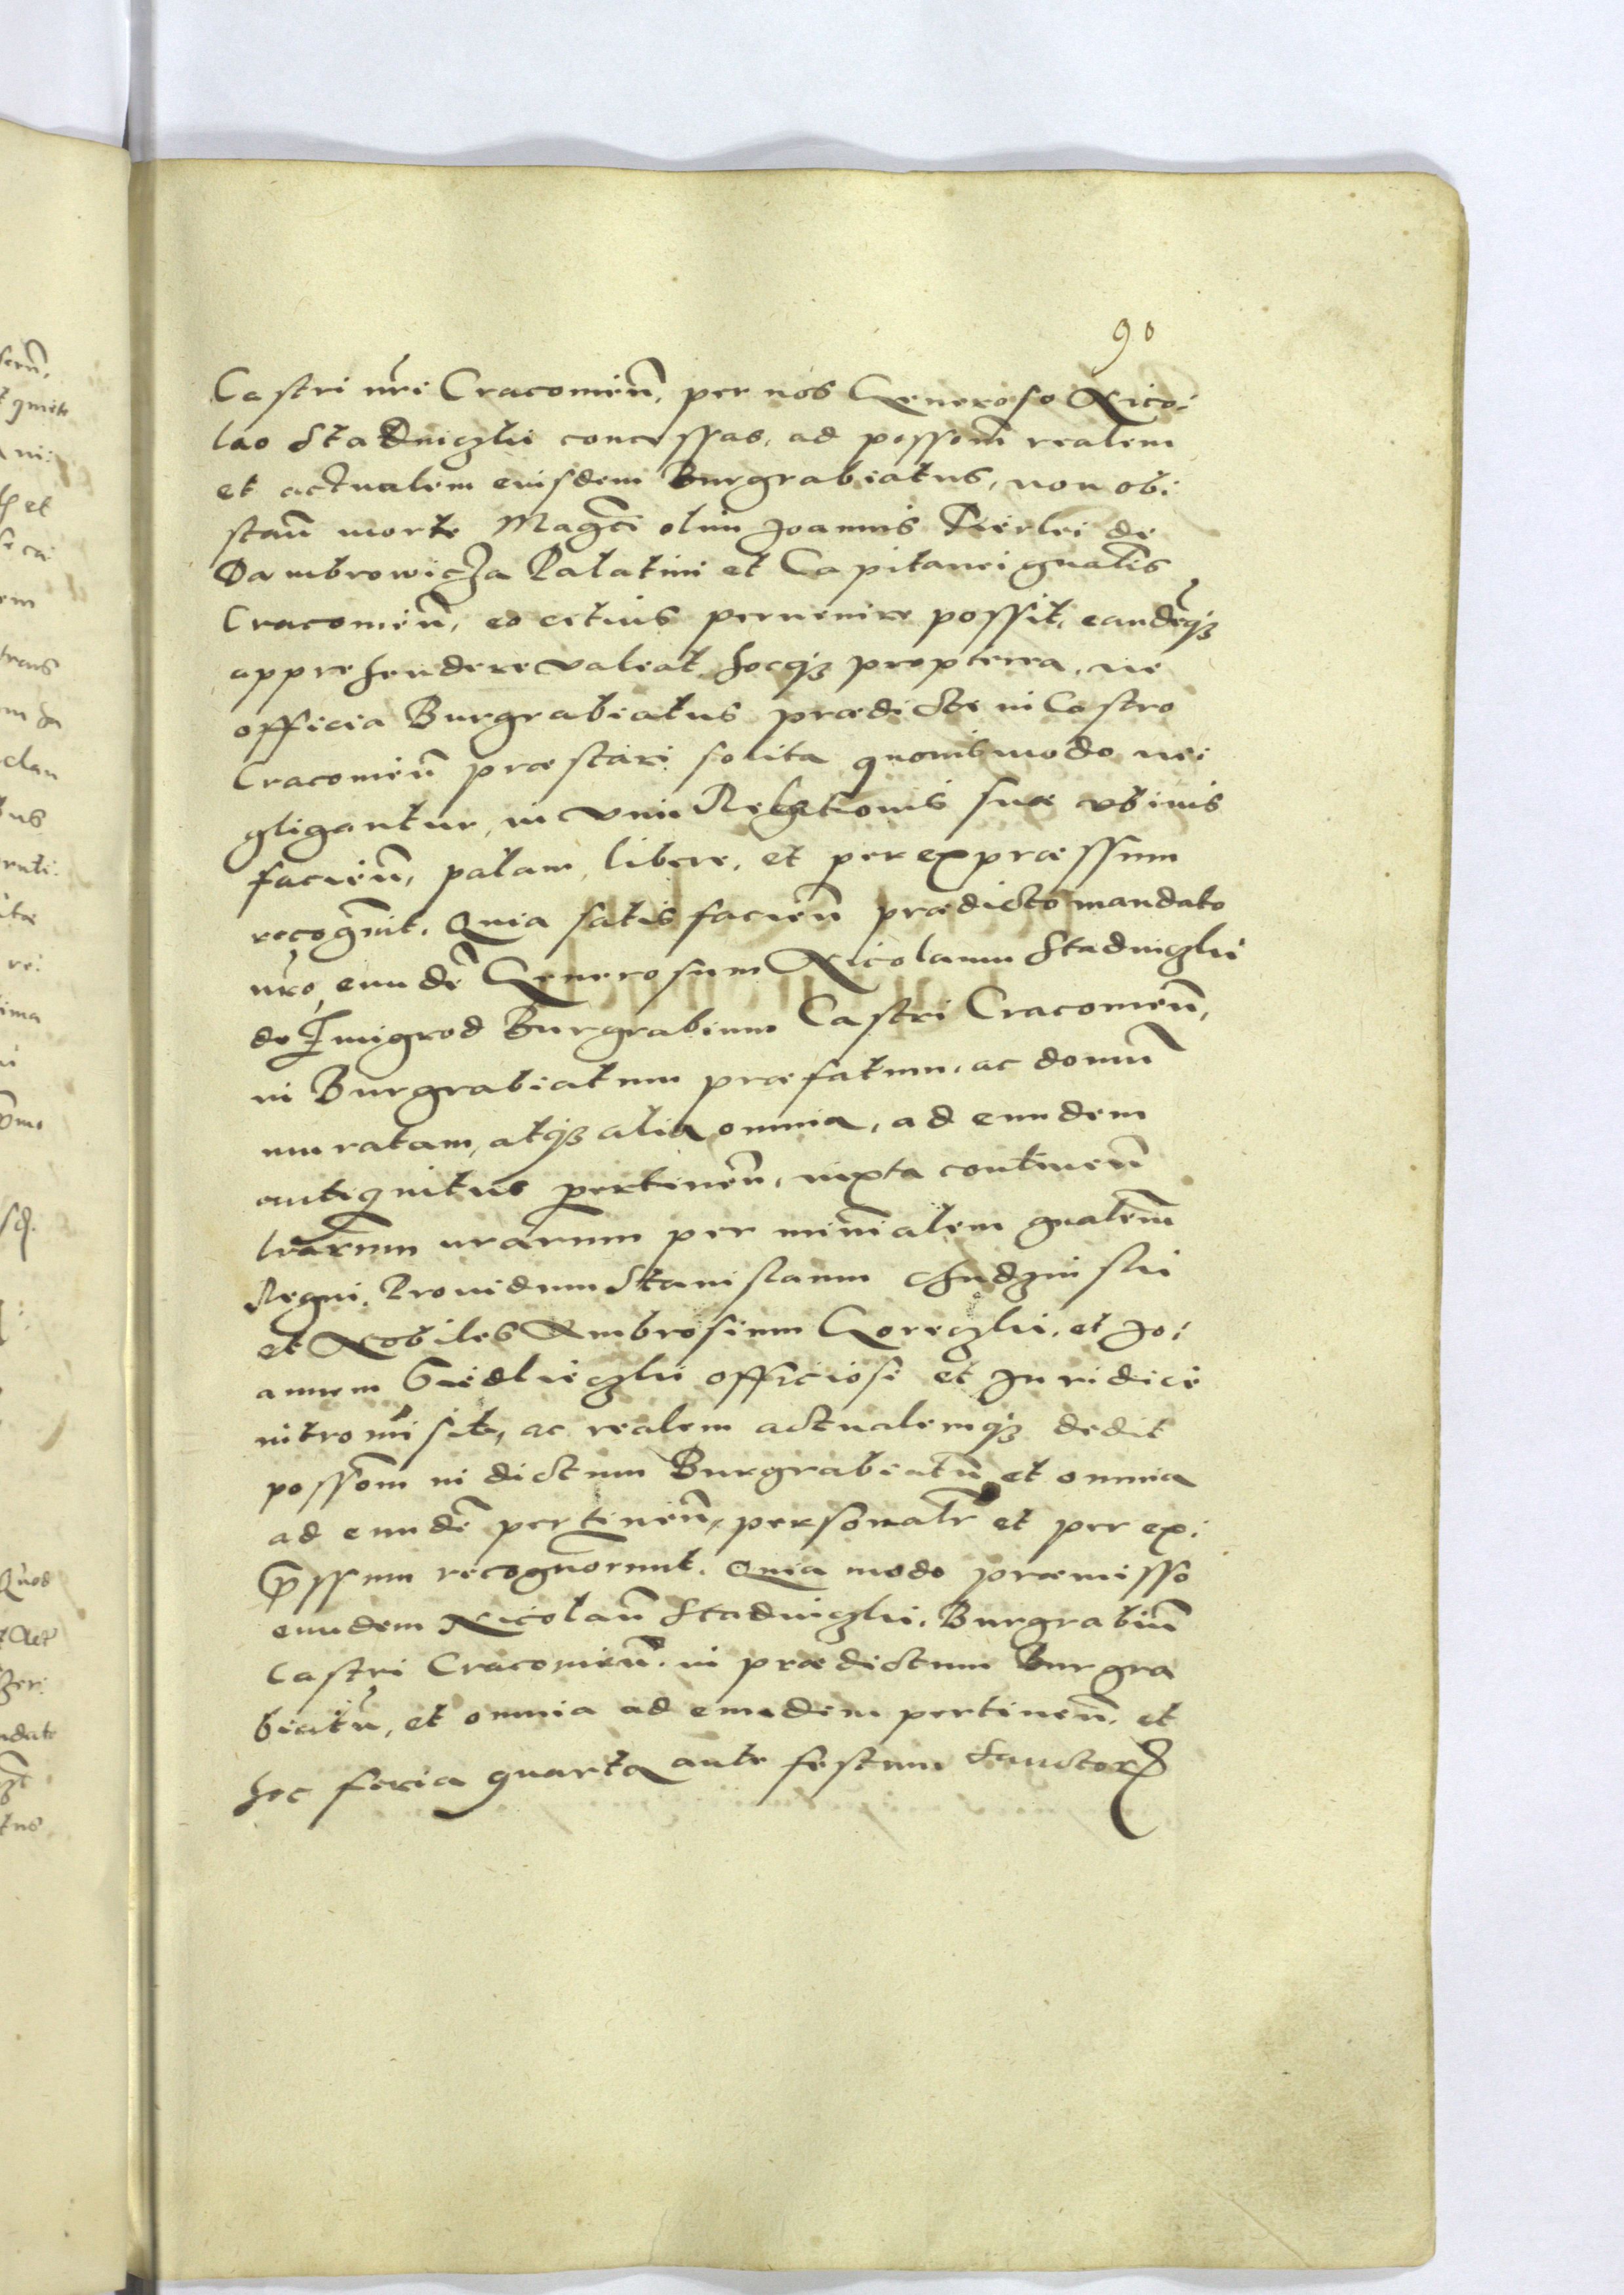 90
Castri nr̃i Cracouieñ, per nos Generoso Nico:
lao Stadniczki concessas, ad possom̃ realem
et actualem eiusdem Burgrabiatus, non ob:
stañ morte Mag̃ci olim Joannis Fierlei de
Dambrowicza Palatini et Capitanei gnalis
Cracouieñ, eo citius peruenire possit, eandẽq3
apprehendere valeat. hocq3 propterea, ne
officia Burgrabiatus prædicte in Castro
Cracouieñ præstari solita quouismodo ne:
gligantur, in vim Relationis suæ vbiuis
facieñ, palam, libere, et per expræssum
recog̃uit. Quia satisfacieñ prædicto mandato
nr̃o, eundẽ Generosum Nicolaum Stadniczki
de Zmigrod Burgrabium Castri Cracouieñ,
in Burgrabiatum præfatum, ac domũ
muratam, atq3 alia omnia, ad eundem
antiquitus pertineñ, iuxta contineñ
lr̃arum nrarum per minr̃ialem gnalem̃
Regni, Prouidum Stanislaum Chudzinski
et Nobiles Ambrosium Goreczki, et Jo:
annem Siedlieczki officiose et Juridice
intromisit, ac realem actualemq3 dedit
possom̃ in dictum Burgrabiatũ et omnia
ad eundẽ pertineñ, personalr̃ et per ex:
p̃ssum recognorunt. Quia modo præmisso
eundem Nicolaũ Stadniczki, Burgrabiũ
Castri Cracouieñ. in prædictum Burgra
biatũ, et omnia ad eundem pertineñ, et
hoc feria quarta ante festum Sanctorꝝ